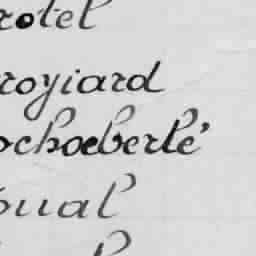 rotel
royiard
ochoeberlé
oual